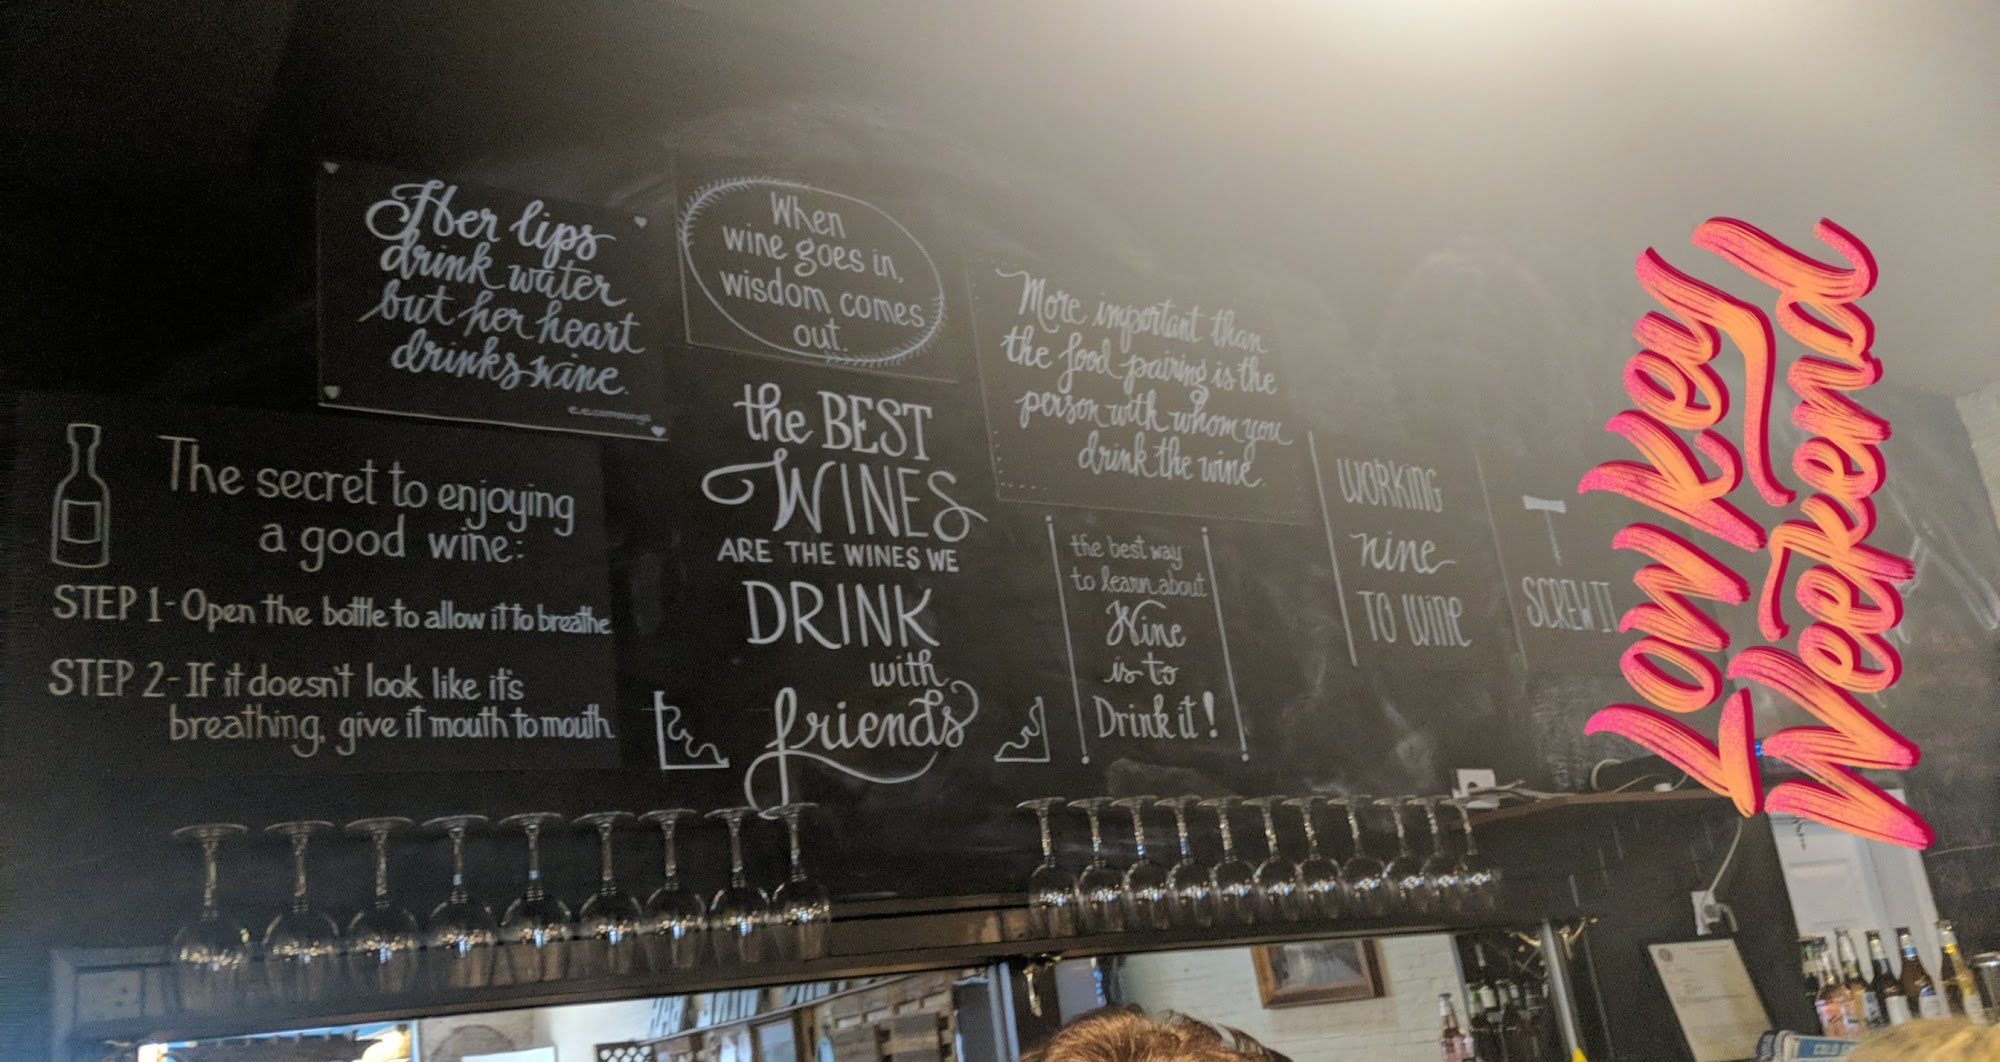 Her lips
drink water
but her heart
drinks wine.
e.e.cummings
When
wine goes in,
wisdom comes
out.
More important than
the food pairing is the
person with whom you
drink the wine.
The secret to enjoying
a good wine:
STEP 1-Open the bottle to allow it to breathe
STEP 2-If it doesn't look like it's
breathing, give it mouth to mouth.
the BEST
WINES
ARE THE WINES WE
DRINK
with
friends
the best way
to learn about
Wine
is to
Drink it!
WORKING
nine
TO WINE
SCREW IT
Low Key
Weekend